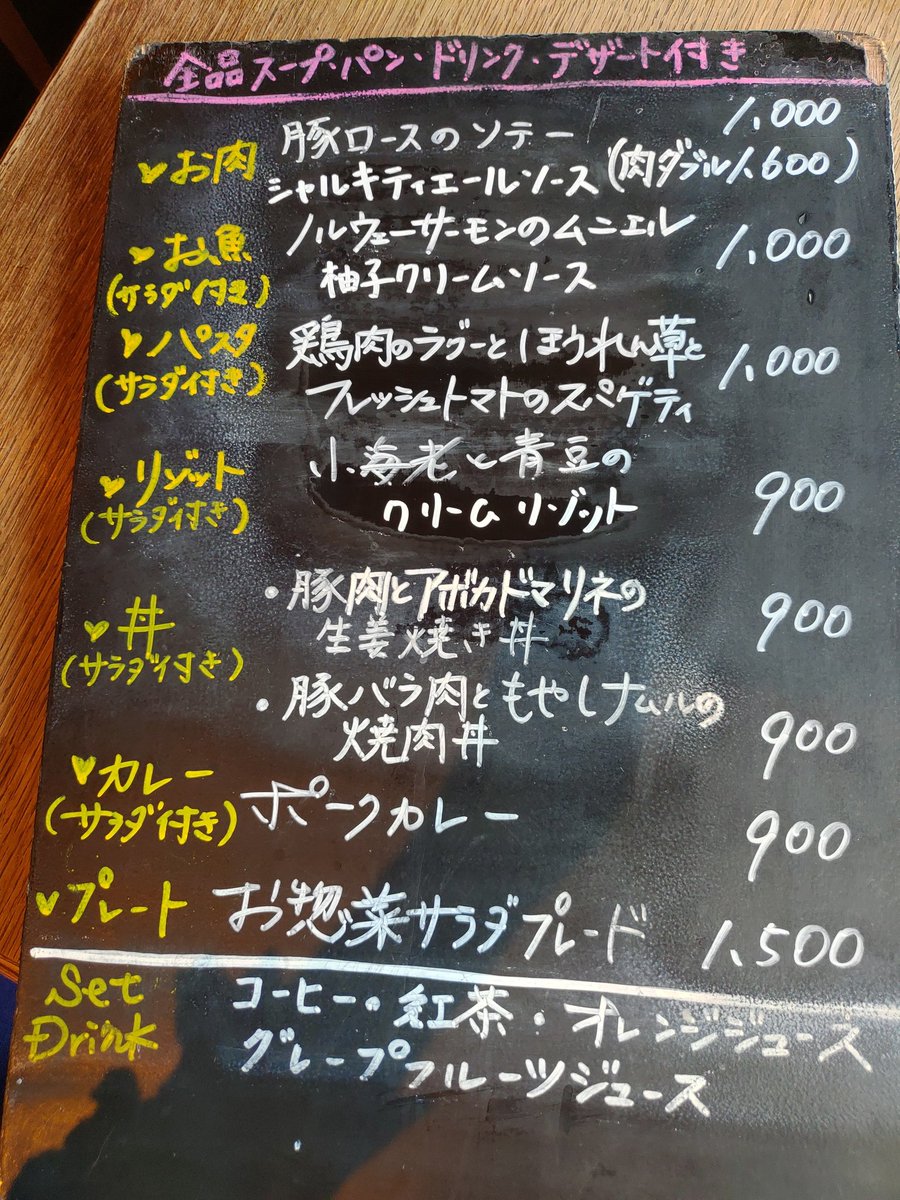 全品スープ・パン・ドリンク・デザート付き
♥お肉 豚ロースのソテー 1,000
シャルキティエールソース (肉ダブル1,600)
♥お魚 ノルウェーサーモンのムニエル 1,000
(サラダ付き) 柚子クリームソース
♥パスタ 鶏肉のラグーとほうれん草と 1,000
(サラダ付き) フレッシュトマトのスペゲティ
♥リゾット 小海老と青豆の 900
(サラダ付き) クリームリゾット
♥丼 ・豚肉とアボカドマリネの 900
(サラダ付き) 生姜焼き丼
・豚バラ肉ともやしナムルの 900
焼肉丼
♥カレー ポークカレー 900
(サラダ付き)
♥プレート お惣菜サラダプレード 1,500
Set コーヒー・紅茶・オレンジジュース
Drink グレープフルーツジュース